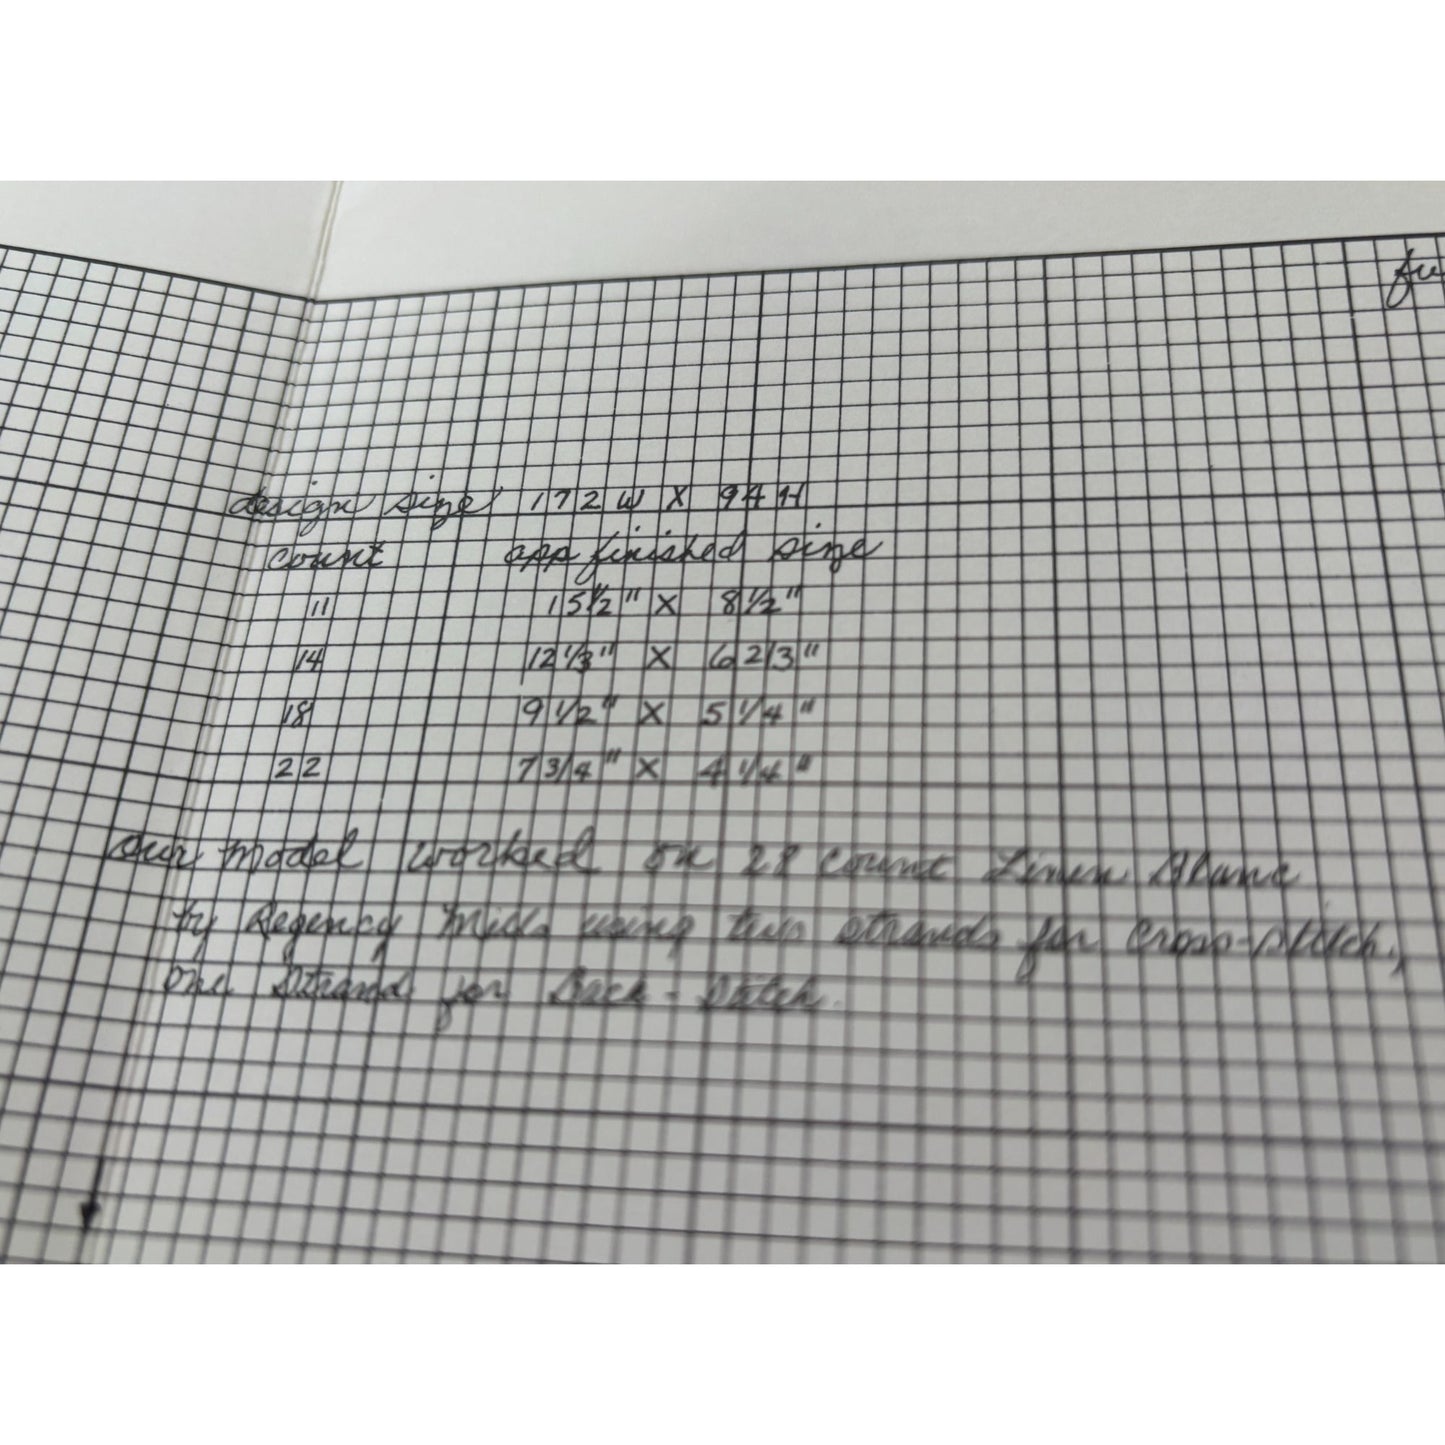 fu
design size 172 W X 94 H
count app finished size
11 15 1/2" X 8 1/2"
14 12 1/3" X 6 2/3"
18 9 1/2" X 5 1/4"
22 7 3/4" X 4 1/4"
Our model worked on 28 count Linen Blanc
by Regency Mills using two strands for Cross-stitch,
One Strand for Back-Stitch.